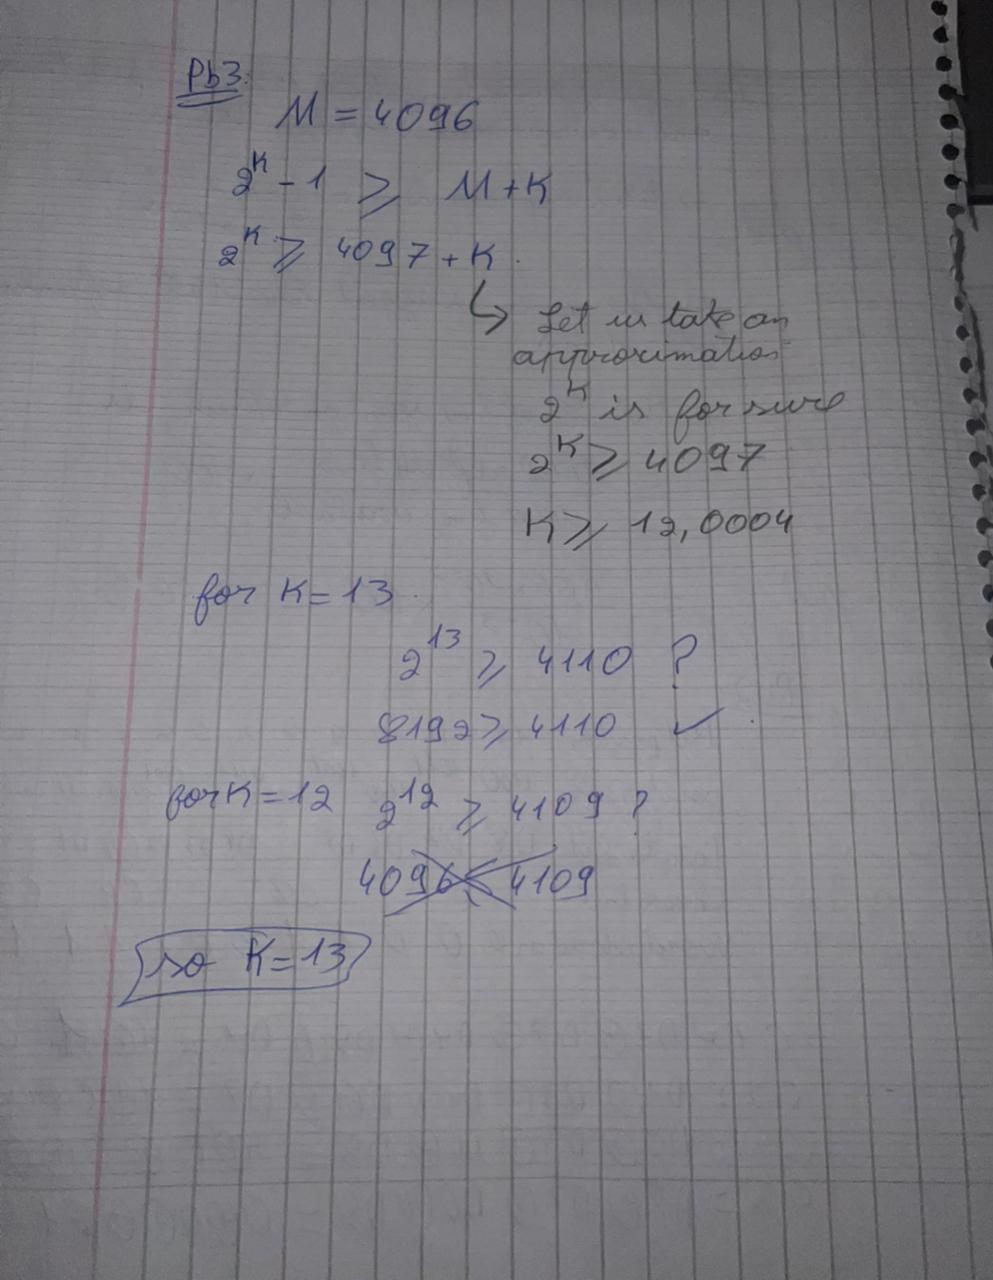 Pb3.
M = 4096
2^K - 1 ⩾ M + K
2^K ⩾ 4097 + K.
↳ Let us take an
approximation
2^K is for sure
2^K ⩾ 4097
K ⩾ 12,0004
for K = 13.
2^13 ⩾ 4110 ?
8192 ⩾ 4110 ✓
for K = 12 2^12 ⩾ 4109 ?
4096 ⩽ 4109
so K = 13